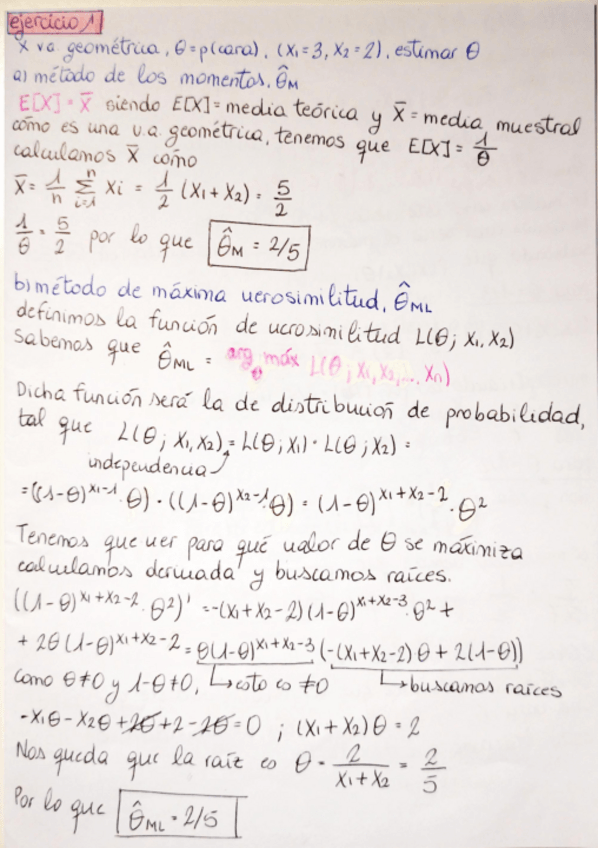 ejercicio 1
X v.a. geométrica, θ=p(cara), (X1=3, X2=2), estimar θ
a) método de los momentos, θ̂M
E[X]=X̄ siendo E[X]=media teórica y X̄=media muestral
como es una v.a. geométrica, tenemos que E[X]=1/θ
calculamos X̄ como
X̄ = 1/n Σ(i=1, n) Xi = 1/2 (X1+X2) = 5/2
1/θ = 5/2 por lo que θ̂M = 2/5
b) método de máxima verosimilitud, θ̂ML
definimos la función de verosimilitud L(θ; X1, X2)
Sabemos que θ̂ML = arg máx θ L(θ; X1, X2, ..., Xn)
Dicha función será la de distribución de probabilidad,
tal que L(θ; X1, X2) = L(θ; X1) · L(θ; X2) =
independencia
=((1-θ)^(X1-1) · θ) · ((1-θ)^(X2-1) · θ) = (1-θ)^(X1+X2-2) · θ²
Tenemos que ver para qué valor de θ se máximiza
calculamos derivada y buscamos raíces.
((1-θ)^(X1+X2-2) · θ²)' = -(X1+X2-2)(1-θ)^(X1+X2-3) · θ² +
+ 2θ(1-θ)^(X1+X2-2) = θ(1-θ)^(X1+X2-3) (-(X1+X2-2)θ + 2(1-θ))
como θ≠0 y 1-θ≠0, ↳ esto es ≠0 ↳ buscamos raíces
-X1θ - X2θ + 2θ + 2 - 2θ = 0 ; (X1+X2)θ = 2
Nos queda que la raíz es θ = 2/(X1+X2) = 2/5
Por lo que θ̂ML = 2/5